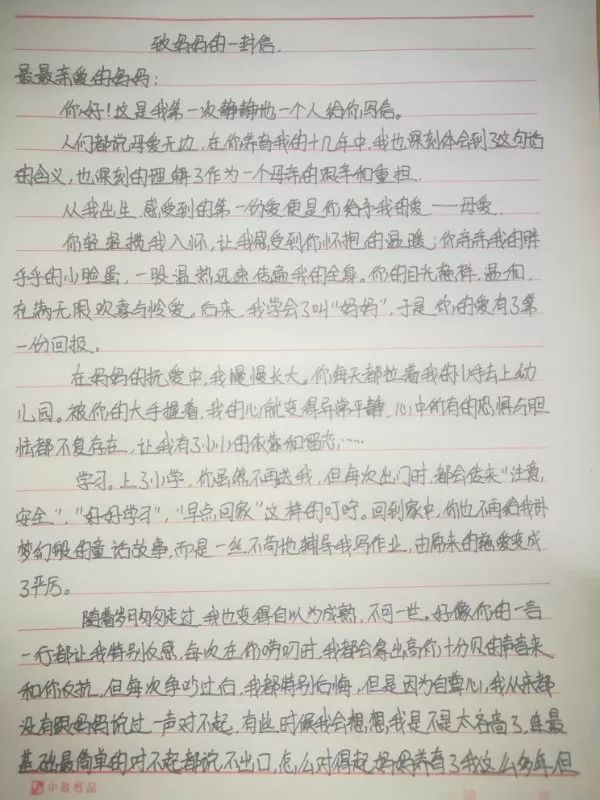 致妈妈的一封信.
最最亲爱的妈妈：
你好！这是我第一次静静地一个人给你写信。
人们都说母爱无边，在你养育我的十几年中，我也深刻体会到了这句话
的含义，也深刻的理解了作为一个母亲的艰辛和重担.
从我出生，感受到的第一份爱便是你给予我的爱——母爱.
你轻轻揽我入怀，让我感受到你怀抱的温暖；你亲亲我的胖
乎乎的小脸蛋，一股温热迅速传遍我的全身。你的目光慈祥，温和，
充满无限欢喜与怜爱。后来，我学会了叫“妈妈”，于是你的爱有了第
一份回报。
在妈妈的抚爱中，我慢慢长大。你每天都拉着我的小手去上幼
儿园。被你的大手握着，我的心就变得异常平静，心中所有的恐惧与胆
怯都不复存在，让我有了小小的依靠和留恋……
学习。上了小学，你虽然不再送我，但每次出门时，都会传来“注意
安全”，“好好学习”，“早点回家”这样的叮咛。回到家中，你也不再给我讲
梦幻般的童话故事，而是一丝不苟地辅导我写作业，由原来的慈爱变成
了严厉。
随着岁月匆匆走过，我也变得自以为成熟，不可一世。好像你的一言
一行都让我特别反感，每次在你唠叨时，我都会拿出高你十分贝的声音来
和你反抗，但每次争吵过后，我都特别后悔，但是因为自尊心，我从来都
没有跟妈妈说过一声对不起，有些时候我会想，想我是不是太吝啬了，连最
基础最简单的对不起都说不出口，怎么对得起妈妈养育了我这么多年，但
中融纸品
第 页